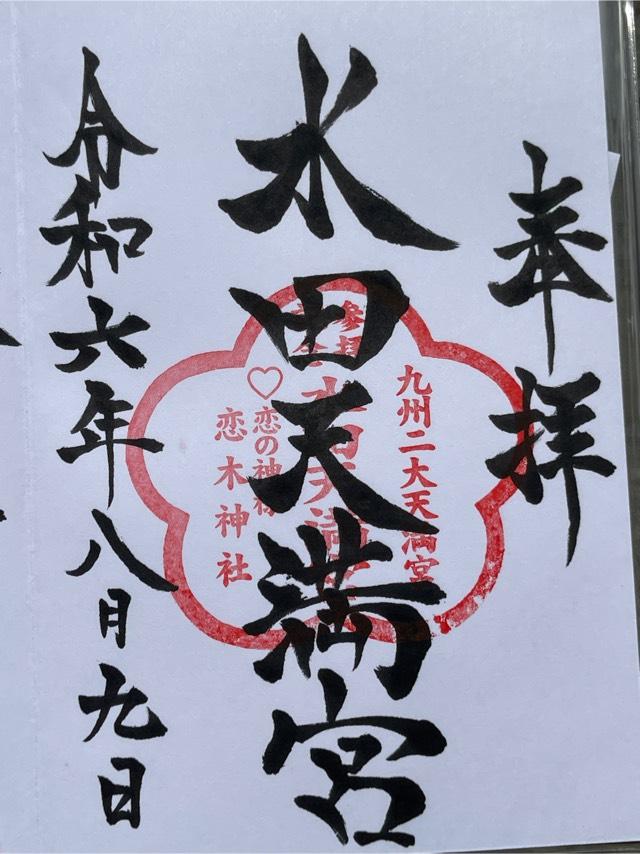 奉拝
水田天満宮
令和六年八月九日
九州二大天満宮
水田天満宮
♡恋の神様
恋木神社